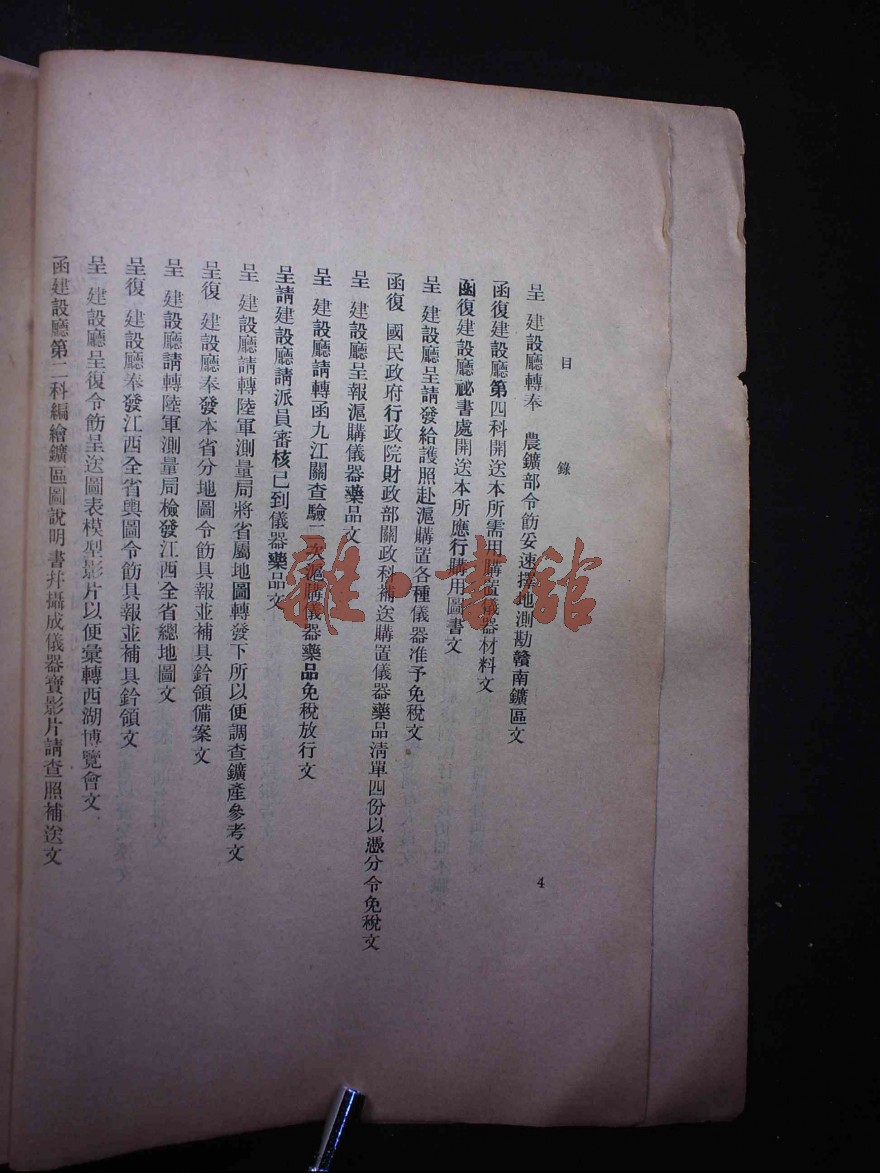 目錄
4
呈 建設廳轉奉 農鑛部令飭妥速擇地測勘贛南鑛區文
函復建設廳第四科開送本所需用購置儀器材料文
函復建設廳祕書處開送本所應行購用圖書文
呈 建設廳呈請發給護照赴滬購置各種儀器准予免稅文
函復 國民政府行政院財政部關政科補送購置儀器藥品清單四份以憑分令免稅文
呈 建設廳呈報滬購儀器藥品文
呈 建設廳請轉函九江關查驗二次滬購儀器藥品免稅放行文
呈請建設廳請派員審核已到儀器藥品文
呈 建設廳請轉陸軍測量局將省屬地圖轉發下所以便調查鑛產參考文
呈復 建設廳奉發本省分地圖令飭具報並補具鈐領備案文
呈 建設廳請轉陸軍測量局檢發江西全省總地圖文
呈復 建設廳奉發江西全省輿圖令飭具報並補具鈐領文
呈 建設廳呈復令飭呈送圖表模型影片以便彙轉西湖博覽會文
函建設廳第二科編繪鑛區圖說明書幷攝成儀器寶影片請查照補送文
雜·書館